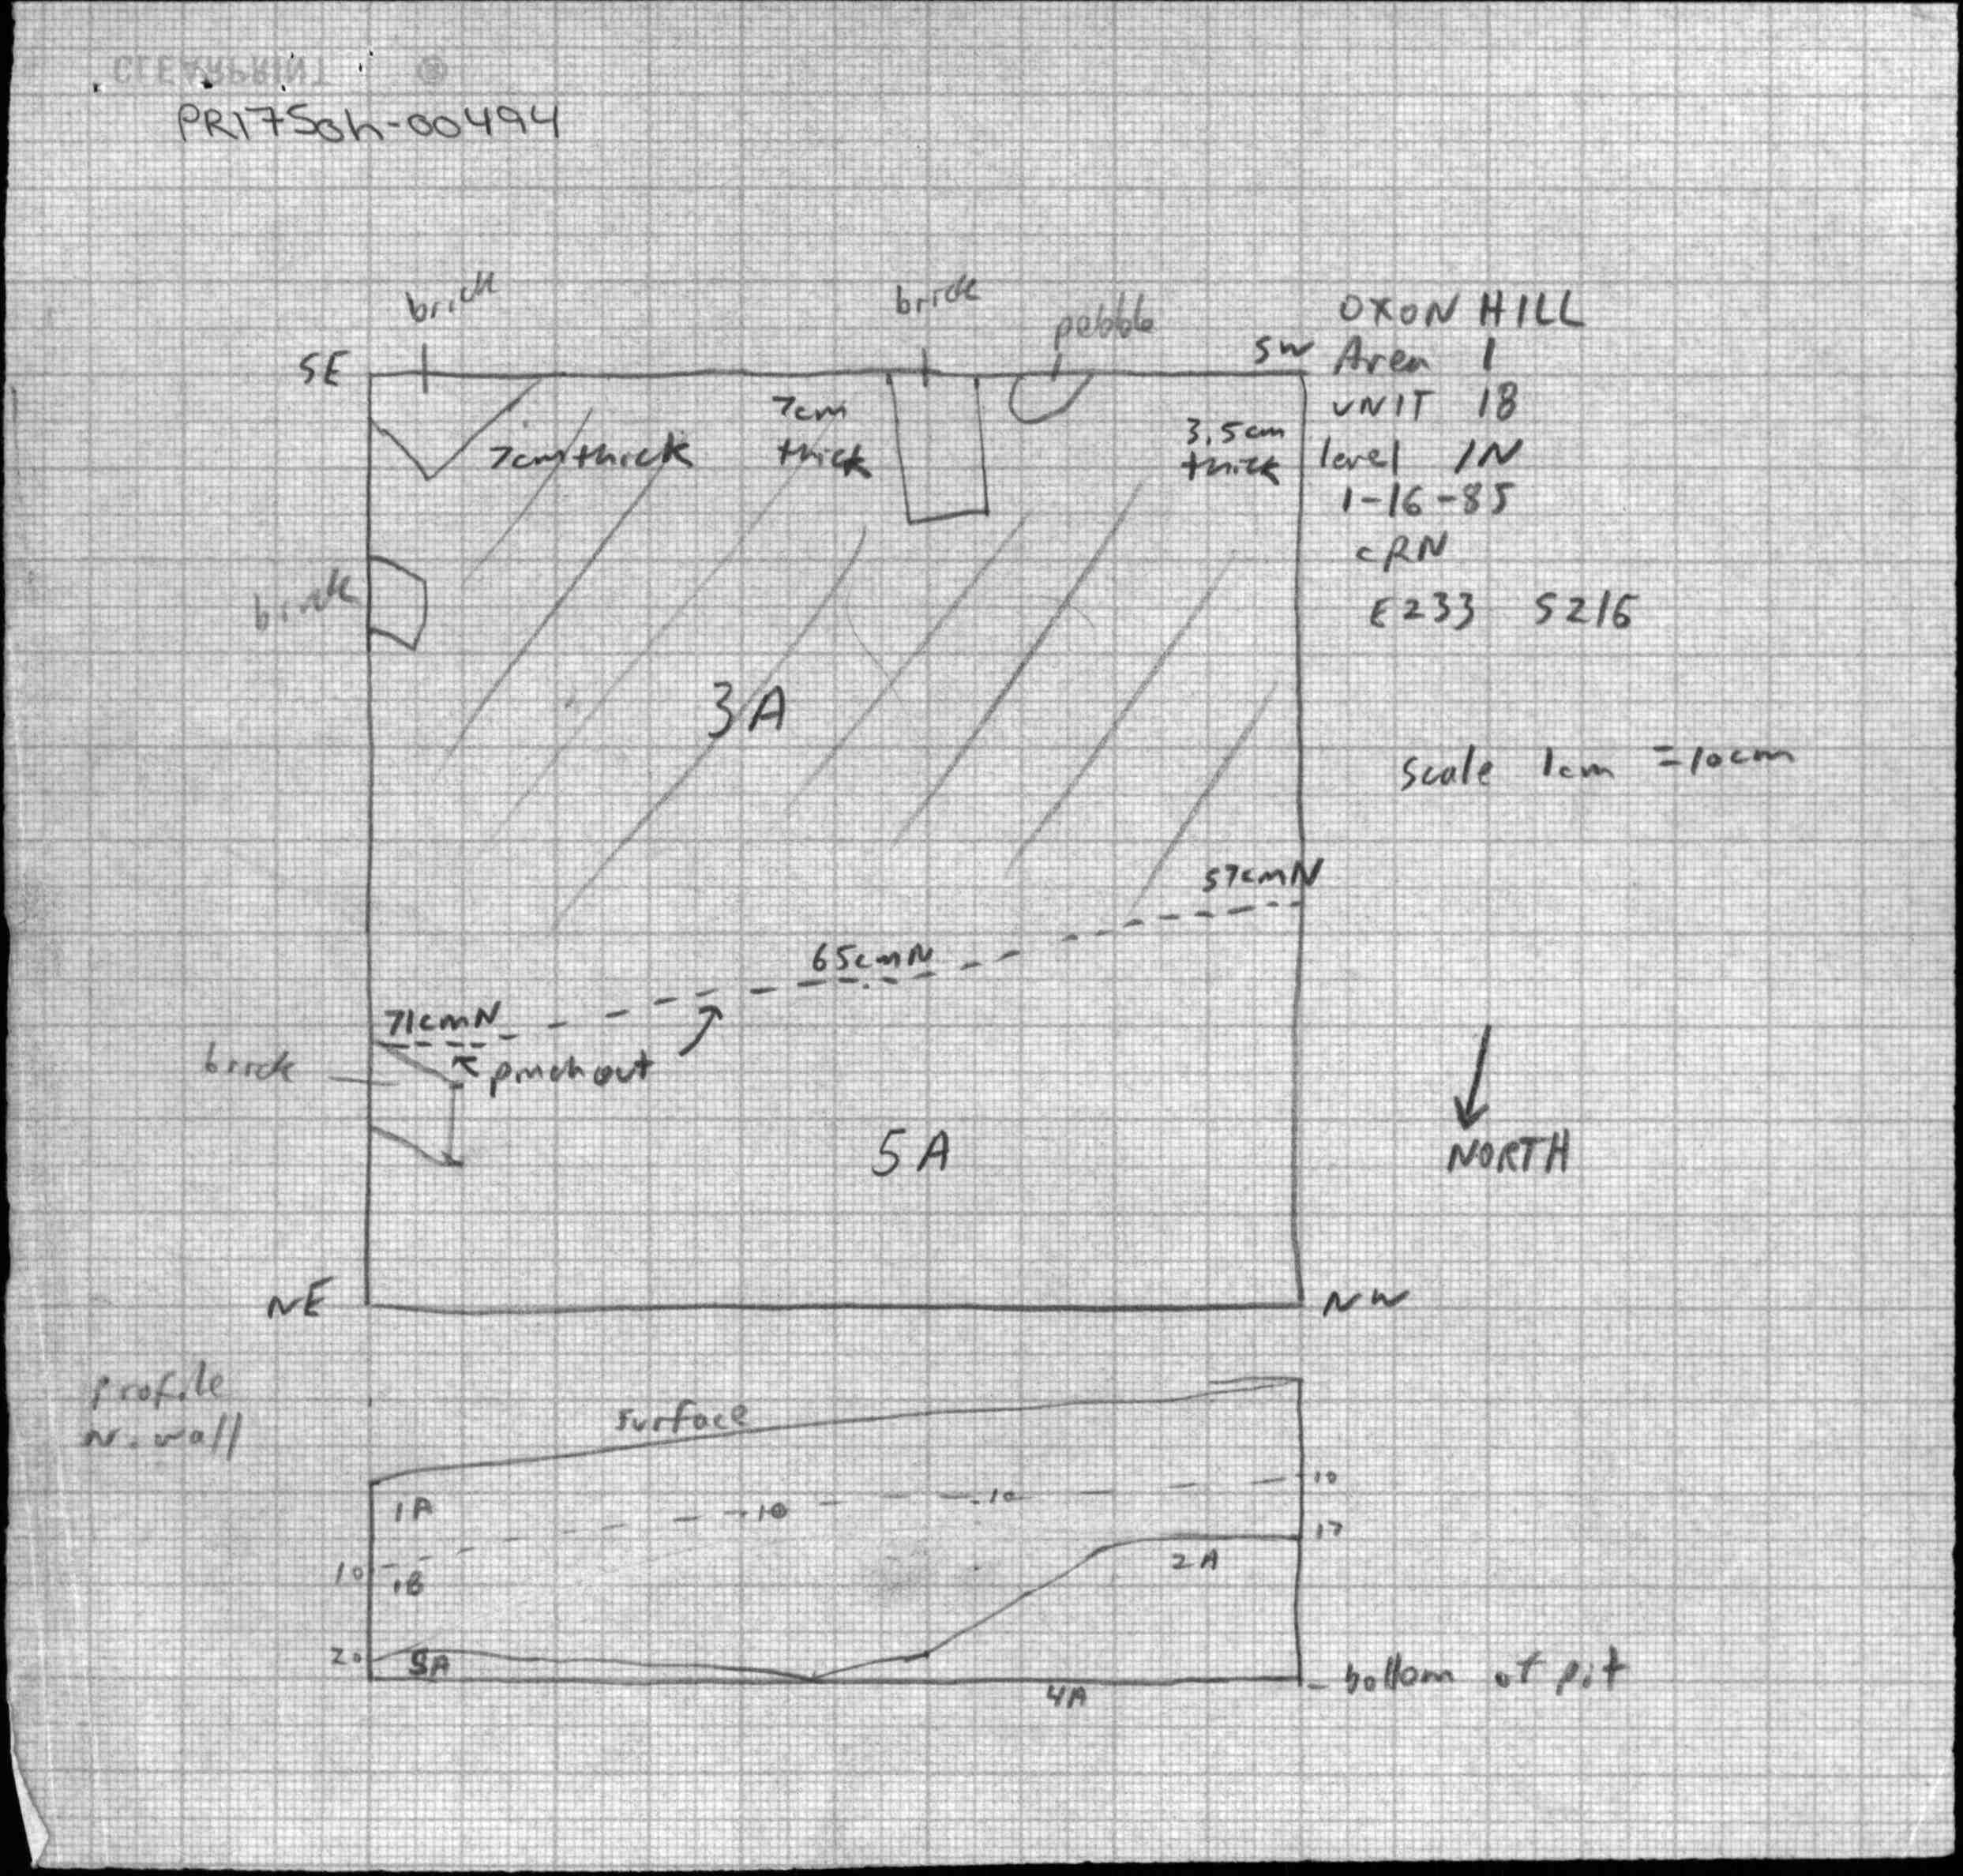 CLEARPRINT ®
PR175oh-00494
brick
brick
pebble
SE
SW
OXON HILL
Area 1
UNIT 18
level IN
1-16-85
CRN
E233 S216
7cm thick
7cm
thick
3.5cm
thick
brick
3A
scale 1cm = 10cm
57cmN
65cmN
71cmN
brick
pinch out
5A
NORTH
NE
NW
profile
N. wall
surface
1A
10
10
10
17
2A
10
1B
20
5A
4A
bottom of pit